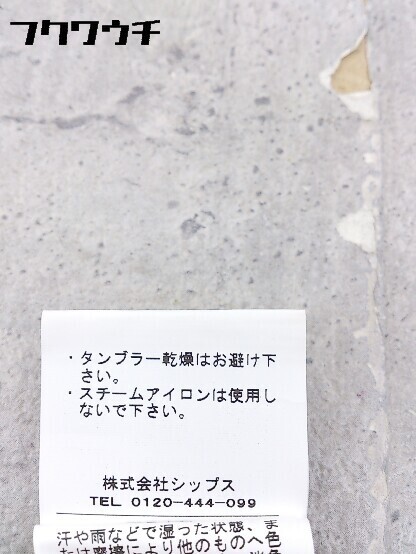 フクワウチ
・タンブラー乾燥はお避け下
さい。
・スチームアイロンは使用し
ないで下さい。
株式会社シップス
TEL 0120-444-099
汗や雨などで湿った状態、ま
たは摩擦により他のものへ色